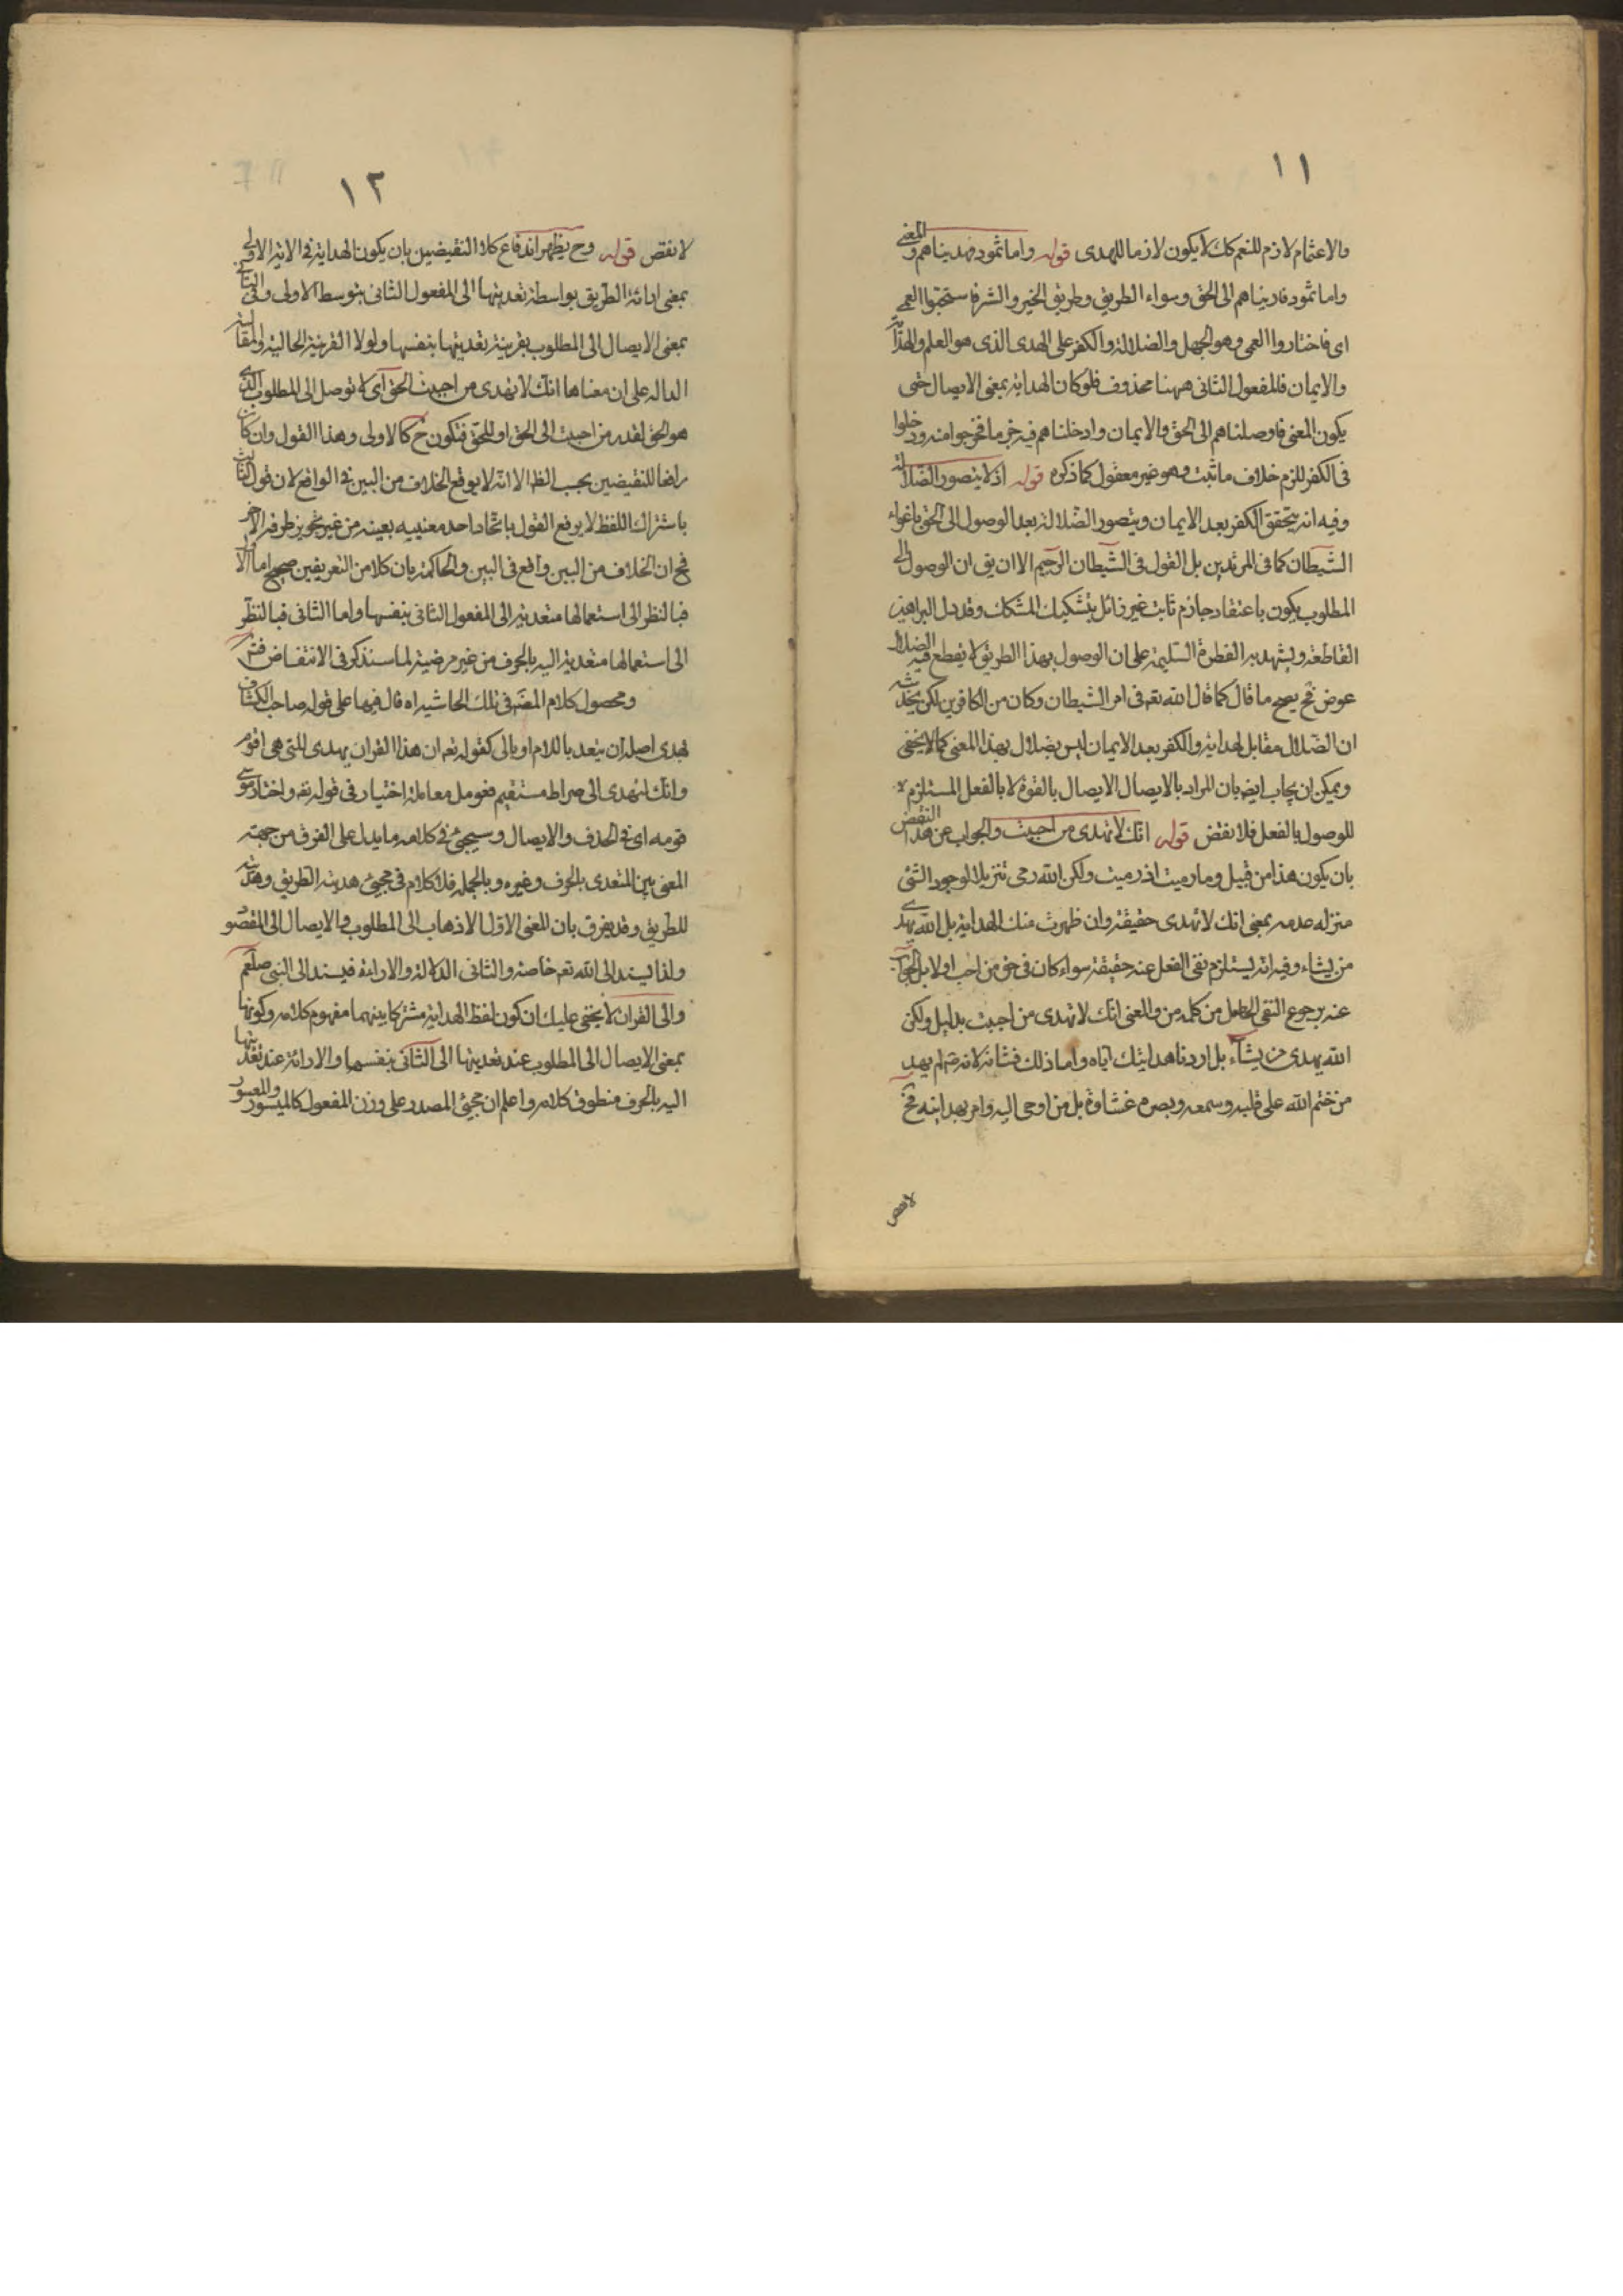 ١١
والاعتمام لازم للنعم كك لا يكون لازما للهدى قوله واما ثمود فهديناهم والمعنى
واما ثمود فاريناهم الى الحق وسواء الطريق وطريق الخير والشر فاستحبوا العمى
اى فاختاروا العمى وهو الجهل والضلالة والكفر على الهدى الذى هو العلم والهداية
والايمان فالمفعول الثانى ههنا محذوف فلو كان الهداية بمعنى الايصال حتى
يكون المعنى فاوصلناهم الى الحق والايمان وادخلناهم فيه فخرجوا منه ودخلوا
فى الكفر للزم خلاف ما ثبت وهو غير معقول كما ذكره قوله اذ لا يتصور الضلالة
وفيه انه يتحقق الكفر بعد الايمان ويتصور الضلالة بعد الوصول الى الحق باغواء
الشيطان كما فى المرتدين بل القول فى الشيطان الرجيم الا ان يق ان الوصول الى
المطلوب يكون باعتقاد جازم ثابت غير زائل بتشكيك المشكك وقد دل البراهين
القاطعة ويشهد به الفطرة السليمة على ان الوصول بهذا الطريق لا يقطع فيه الضلال
عوض فح يصح ما قال كما قال الله تعه فى امر الشيطان وكان من الكافرين لكن يخدشه
ان الضلال مقابل لهداية والكفر بعد الايمان ليس بضلال بهذا المعنى كما لا يخفى
ويمكن ان يجاب ايضه بان المراد بالايصال الايصال بالقوة لا بالفعل المستلزم
للوصول بالفعل فلا نقض قوله انك لا تهدى من احببت والجواب عن هذا النقض
بان يكون هذا من قبيل وما رميت اذ رميت ولكن الله رمى تنزيلا لوجود الشئ
منزلة عدمه بمعنى انك لا تهدى حقيقة وان ظهرت منك الهداية بل الله يهدى
من يشاء وفيه انه يستلزم نفى الفعل عنه حقيقة سواء كان فى حق من احب اولا بل الجواب
عنه برجوع النفى الى من كلمة من والمعنى انك لا تهدى من احببت بدليل ولكن
الله يهدى من يشاء بل اردنا هدايتك اياه واما ذلك فشانه لانه ص لم يهد
من ختم الله على قلبه وسمعه وبصره غشاوة بل من اوحى اليه وامر بهدايته فح
لا نقض
١٢
لا نقض قوله وح يظهر اندفاع كلا النقيضين بان يكون الهداية فى الاية الاولى
بمعنى ارائة الطريق بواسطة تعديتها الى المفعول الثانى بتوسط الاولى وفى الثانى
بمعنى الايصال الى المطلوب بقرينة تعديتها بنفسها ولولا القرينة الحالية والمقالية
الدالة على ان معناها انك لا تهدى من احببت الحق اى لا توصل الى المطلوب الذى
هو الحق لقدر من احببت الى الحق او للحق فتكون ح كالاولى وهذا القول وان كان
رافعا للنقيضين بحسب الظ الا انه لا يوقع الخلاف من البين فى الواقع لان قول الثالث
باشتراك اللفظ لا يرفع القول باتحاد احد معنييه بعينه من غير تجويز طرفه الاخر
فح ان الخلاف من البين واقع فى البين والحاكمة بان كلا من التعريفين صحيح اما الاول
فبالنظر الى استعمالها متعدية الى المفعول الثانى بنفسها واما الثانى فبالنظر
الى استعمالها متعدية اليه بالحرف من غير مرضية لما سنذكر فى الانتقاض فتر
ومحصول كلام المصنف فى تلك الحاشية اه قال فيها على قوله صاحب الكشاف
هدى اصله ان يتعد باللام او بالى كقوله تعه ان هذا القران يهدى للتى هى اقوم
وانك لتهدى الى صراط مستقيم فعومل معاملة اختيار فى قوله تعه واختار موسى
قومه اى فى الحذف والايصال وسيجئ فى كلامه ما يدل على الفرق من جهة
المعنى بين المتعدى بالحرف وغيره وبالجملة فلا كلام فى مجئ هديته الطريق وهديته
للطريق وقد يفرق بان المعنى الاول الاذهاب الى المطلوب والايصال الى المقصود
ولذا يسند الى الله تعه خاصة والثانى الدلالة والارائة فيسند الى النبى صلعم
والى القران لا يخفى عليك ان كون لفظ الهداية مشتركا بينهما مفهوم كلامه وكونها
بمعنى الايصال الى المطلوب عند تعديتها الى الثانى بنفسها والارائة عند تعديتها
اليه بالحرف منطوق كلامه واعلم ان مجئ المصدر على وزن المفعول كالميسور والمعسور